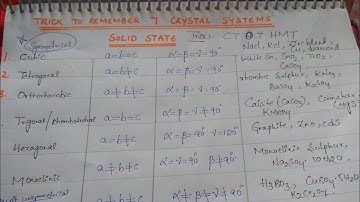 TRICK TO REMEMBER 7 CRYSTAL SYSTEMS
SOLID STATE
Trick: CTOT HMT
Symmetrical
1 Cubic a=b=c α=β=γ=90°
NaCl, KCl, Zincblend, Cu, diamond
2 Tetragonal a=b≠c α=β=γ=90°
White Sn, SnO2, TiO2, CaSO4
3 Orthorhombic a≠b≠c α=β=γ=90°
rhombic Sulphur, KNO3, BaSO4, K2SO4
Trigonal/Rhombohedral a=b=c α=β=γ≠90°
Calcite (CaCO3), Cinnabar (HgS)
Hexagonal a=b≠c α=β=90° γ=120°
Graphite, ZnO, CdS
Monoclinic a≠b≠c α=γ=90° β≠90°
Monoclinic Sulphur, Na2SO4·10H2O
unsymmetrical a≠b≠c α≠β≠γ≠90°
H3BO3, CuSO4·5H2O
K2Cr2O7